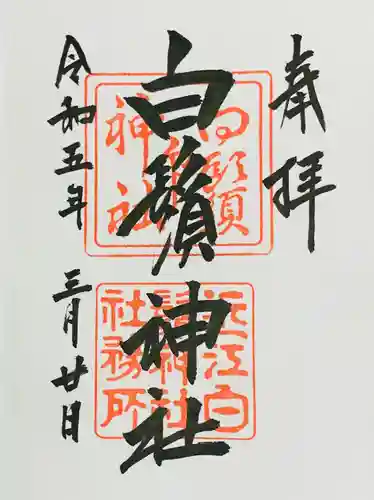 奉拝
白鬚神社
令和五年
三月廿日
白鬚
神社
近江白
鬚神社
社務所